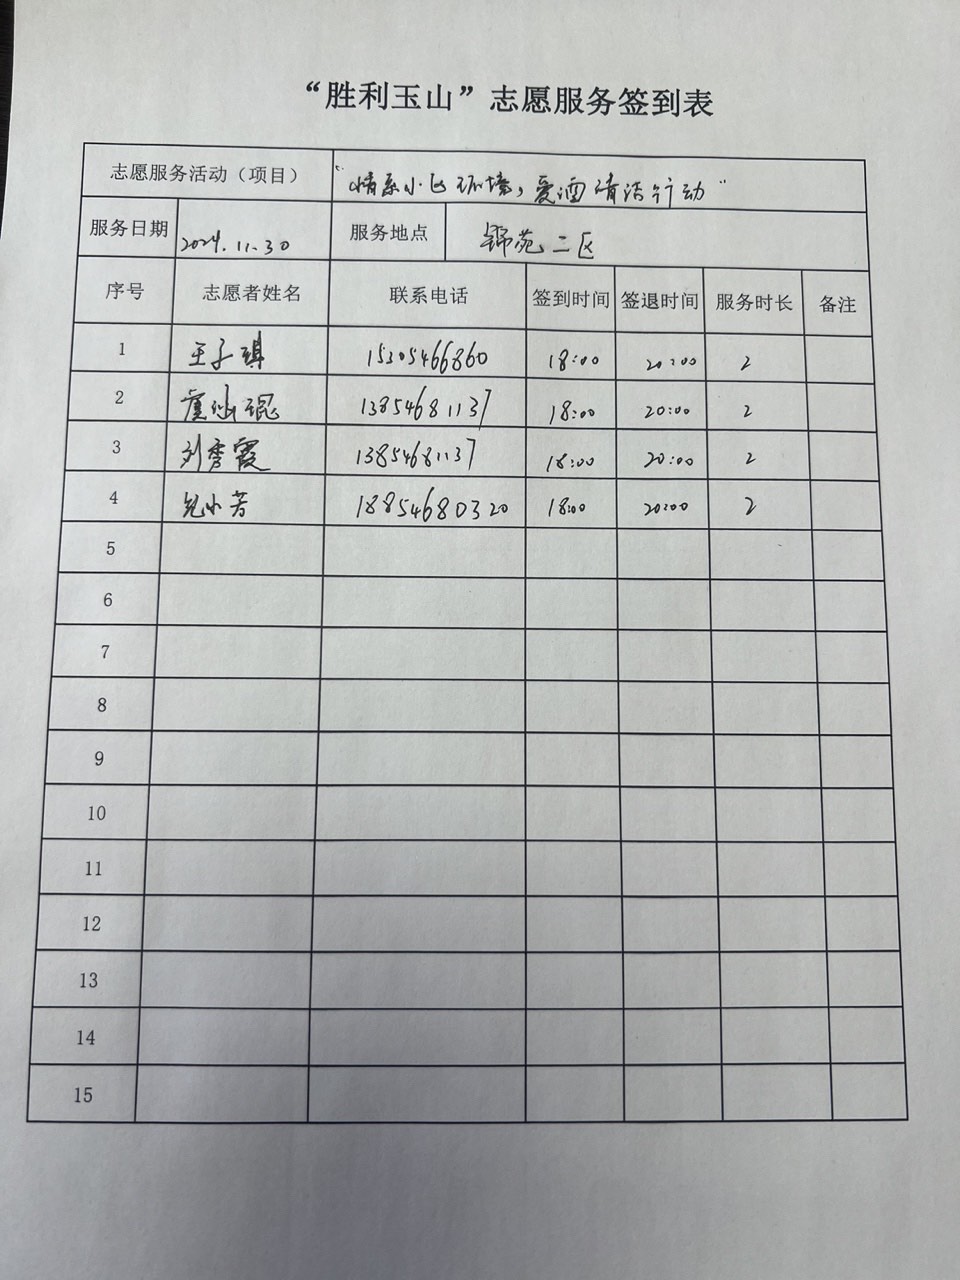 “胜利玉山”志愿服务签到表
志愿服务活动（项目） “情系小区环境，爱洒清洁行动”
服务日期 2024.11.30 服务地点 锦苑二区
序号 志愿者姓名 联系电话 签到时间 签退时间 服务时长 备注
1 王子琪 15305466860 18:00 20:00 2
2 13854681137 18:00 20:00 2
3 刘秀霞 13854681137 18:00 20:00 2
4 小芳 18854680320 18:00 20:00 2
5
6
7
8
9
10
11
12
13
14
15